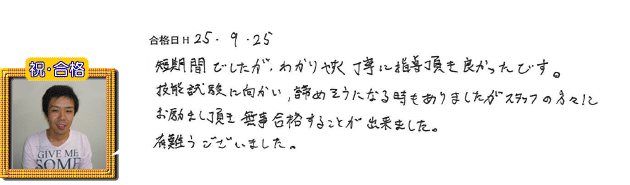 祝・合格
合格日 H 25・9・25
短期間でしたが、わかり易く丁寧に指導頂き良かったです。
技能試験に向かい、諦めそうになる時もありましたがスタッフの方々に
お励まし頂き無事合格することが出来ました。
有難うございました。
GIVE ME
SOME